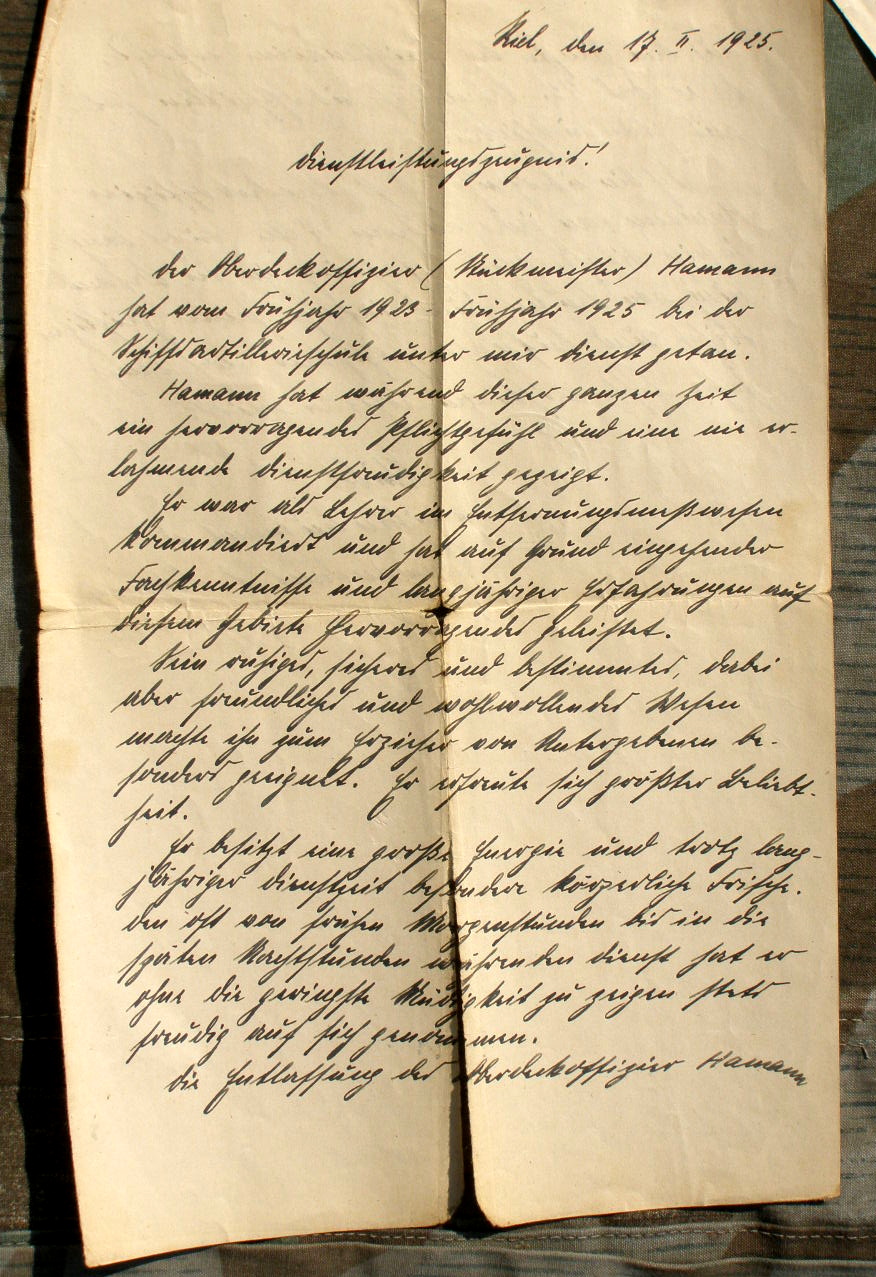 Kiel, den 17. II. 1925.
Dienstleistungszeugnis!
Der Oberdeckoffizier (Stückmeister) Hamann
hat vom Frühjahr 1923 - Frühjahr 1925 bei der
Schiffsartillerieschule unter mir Dienst getan.
Hamann hat während dieser ganzen Zeit
ein hervorragendes Pflichtgefühl und eine nie er-
lahmende Dienstfreudigkeit gezeigt.
Er war als Lehrer im Entfernungsmeßwesen
kommandiert und hat auf Grund eingehender
Fachkenntnisse und langjähriger Erfahrungen auf
diesem Gebiete Hervorragendes geleistet.
Sein ruhiges, sicheres und bestimmtes, dabei
aber freundliches und wohlwollendes Wesen
machte ihn zum Erzieher von Untergebenen be-
sonders geeignet. Er erfreute sich größter Beliebt-
heit.
Er besitzt eine große Energie und trotz lang-
jähriger Dienstzeit besondere körperliche Frische.
Den oft von frühen Morgenstunden bis in die
späten Nachtstunden währenden Dienst hat er
ohne die geringste Müdigkeit zu zeigen stets
freudig auf sich genommen.
Die Entlassung des Oberdeckoffizier Hamann